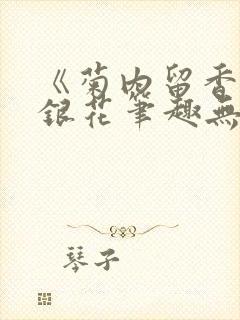 《菊内留香
銀花筆趣無
琴子